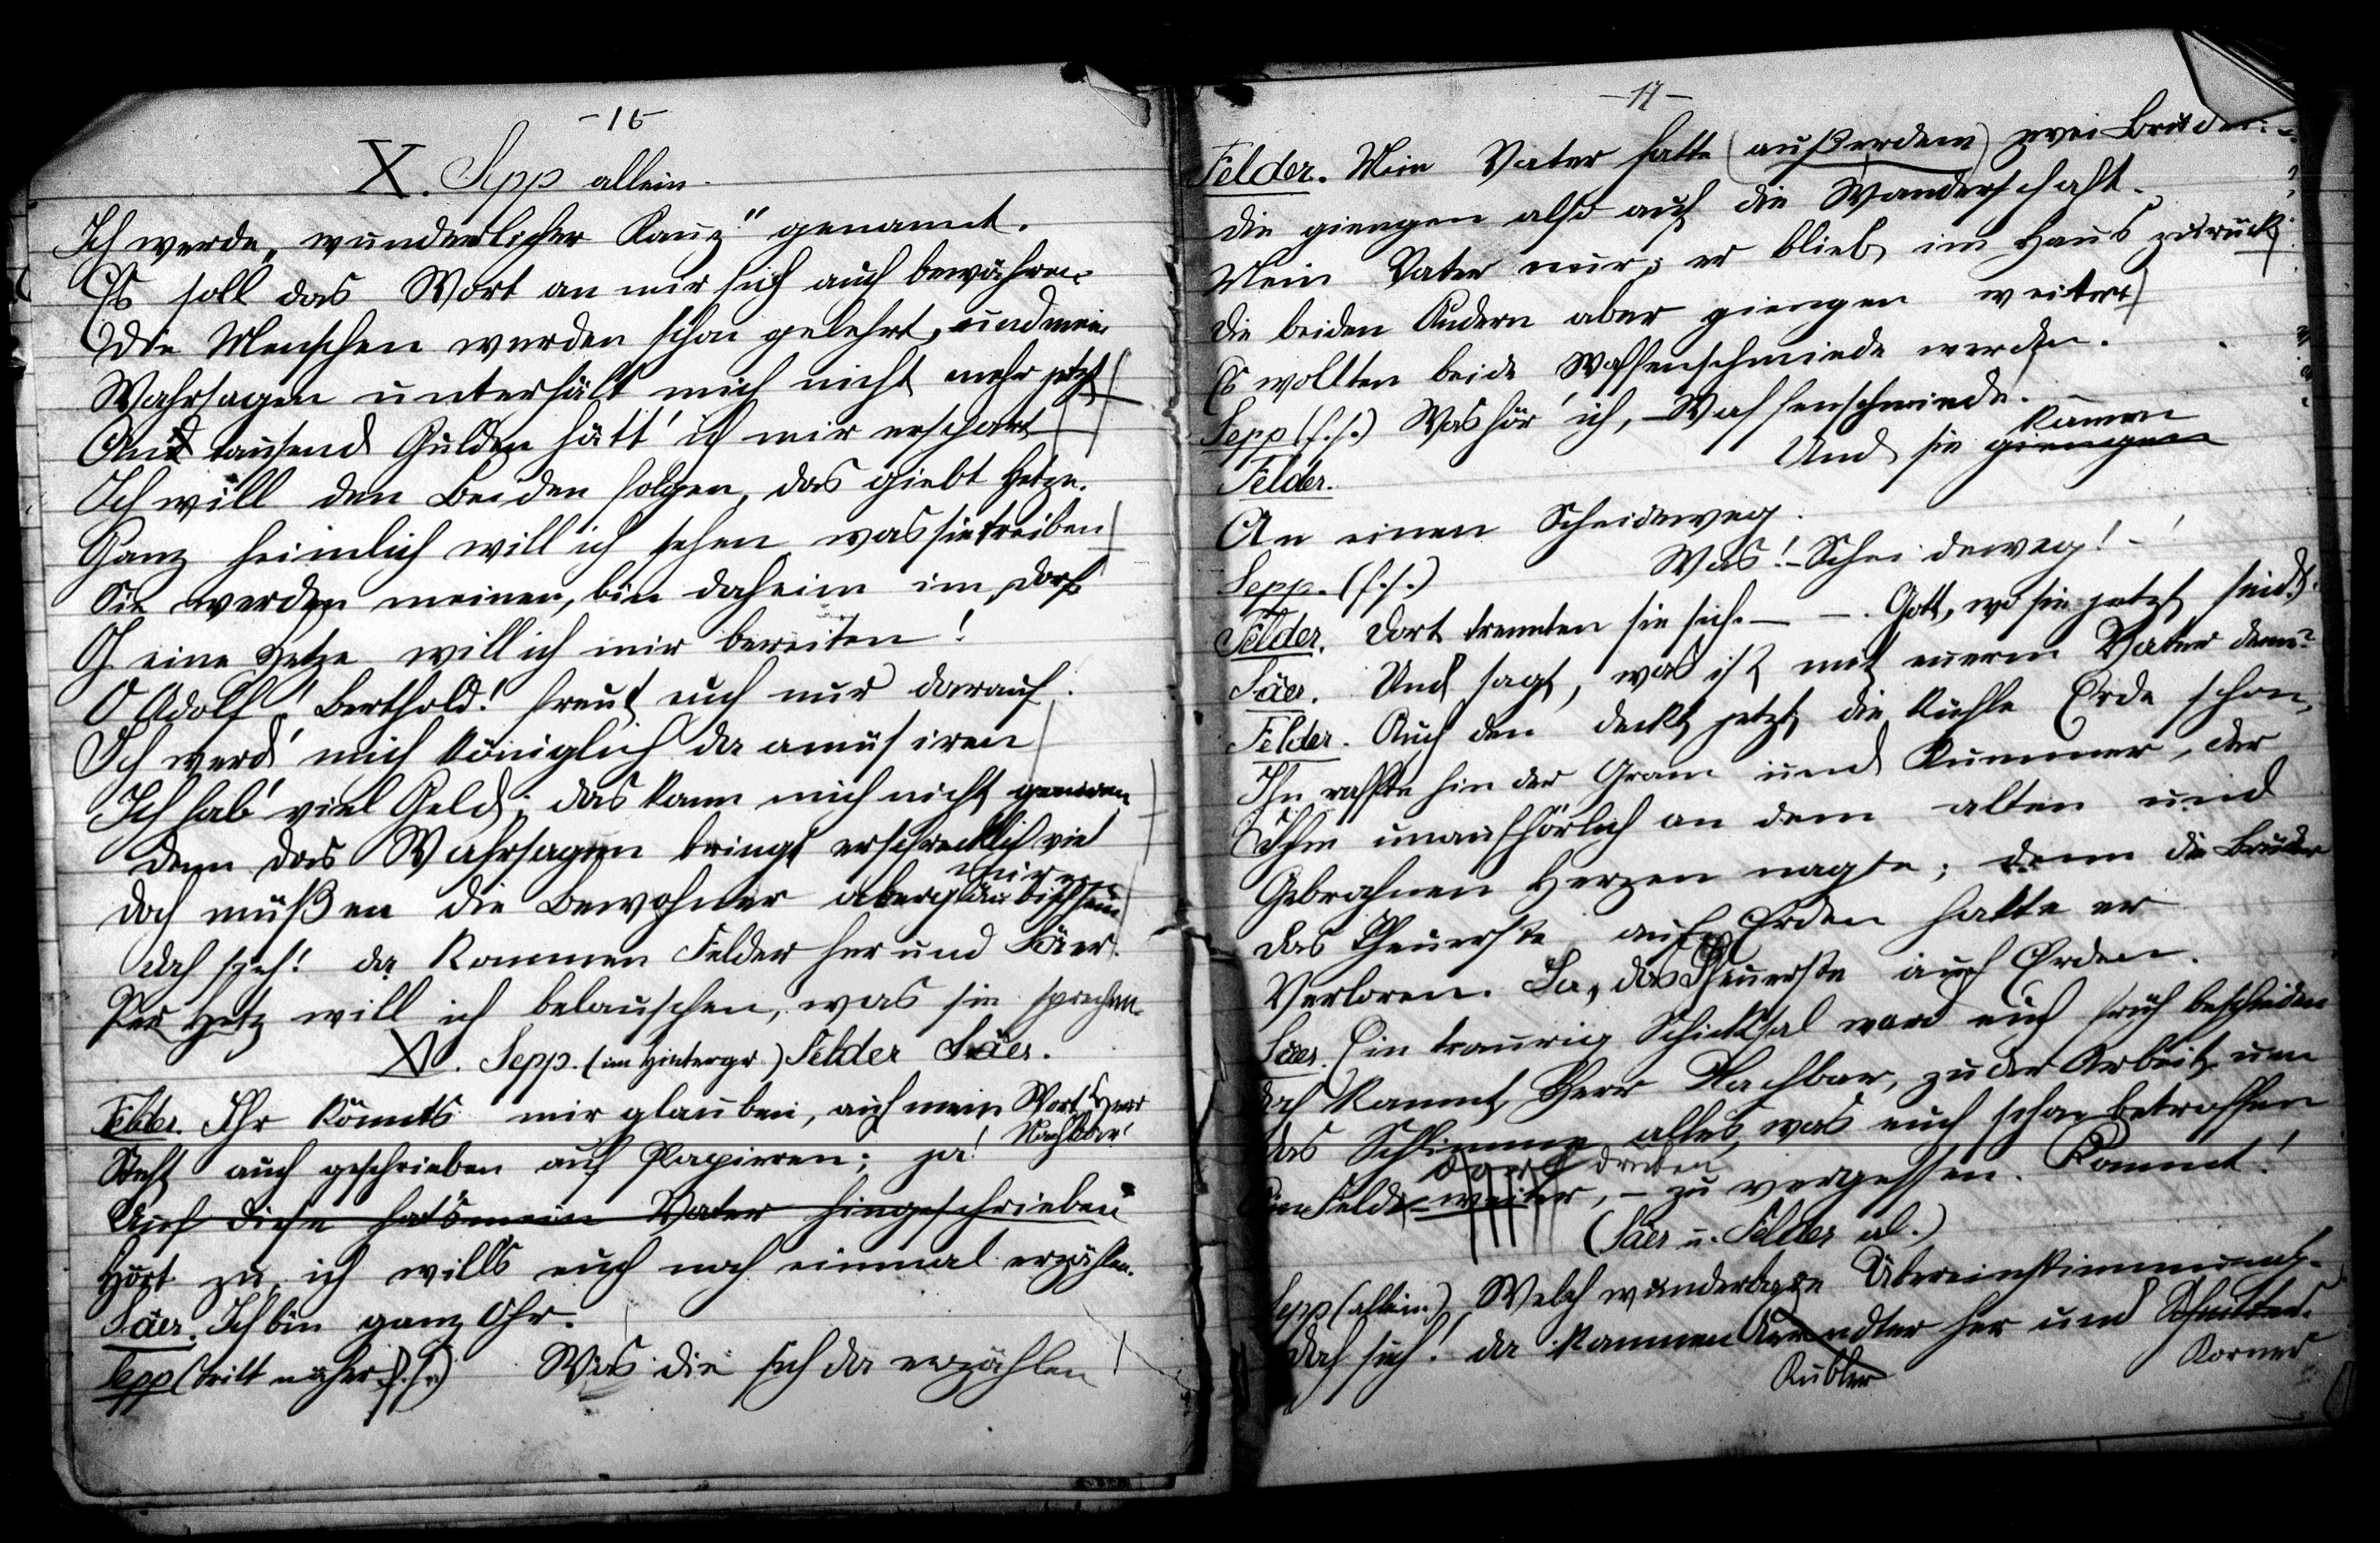 -16-
X. Sepp allein.
Ich werde „wunderlicher Kauz" genannt.
Es soll das Wort an mir sich auch bewähren.
Die Menschen wurden schon gelehrt, und mein
Wahrsagen unterhält mich nicht mehr jetzt
Und tausend Gulden hätt' ich mir erspart
Ich will den Beiden folgen, das giebt Hetze.
Ganz heimlich will ich sehen was sie treiben
Sie werden meinen, bin daheim im Dorf
O eine Hetze will ich mir bereiten!
O Adolf! Berthold! freut euch nur darauf.
Ich werd' mich königlich da amüsiren
Ich hab' viel Geld; das kann mich nicht geniren
denn das Wahrsagen bringt erschrecklich viel
nur
doch müßen die Bewohner abergläubisch sein
doch sieh! da kommen Felder her und Säer.
Per Hetz will ich belauschen, was sie sprechen.
XI. Sepp. (im Hintergr) Felder Säer.
Felder. Ihr könnts mir glauben, auf mein Wort Herr
Nachbar!
Steht auch geschrieben auf Papieren; ja!
Auf diese hat's mein Vater hingeschrieben
Hört zu, ich wills euch noch einmal erzählen.
Säer. Ich bin ganz Ohr.
Sepp (tritt näher f. s.) Was die sich da erzählen
-17-
Felder. Mein Vater hatte (außerdem) zwei Brüder:
die giengen also auf die Wanderschaft.
Mein Vater nur, er blieb im Haus zurück
die beiden Andern aber giengen weiter
Es wollten beide Waffenschmiede werden.
Sepp (f. s.) Was hör' ich, - Waffenschmiede.
kamen
Felder. Und sie giengen
An einen Scheideweg.
Sepp. (f. s.) Was! - Scheideweg! -
Felder. Dort trennten sie sich. — —. Gott, wo sie jetzt sind!
Säer. Und sagt, was ist mit euerm Vater denn?
Felder. Auch den deckt jetzt die kühle Erde schon,
Ihn raffte hin der Gram und Kummer, der
Ihm unaufhörlich an dem alten und
Gebrochnen Herzen nagte; denn die Brüder
das Theuerste auf Erden hatte er
Verloren. Ja, das Theuerste auf Erden.
Säer. Ein traurig Schicksal ward euch früh beschieden
doch kommt, Herr Nachbar, zu der Arbeit um
das Schlimme alles, was euch schon betroffen
dort drüben
Feld - weiter, - zu vergessen. Kommt!
(Säer u. Felder ab.)
Sepp (allein.) Welch wunderbare Übereinstimmung.
doch sieh! da kommen her und
Kübler Korner